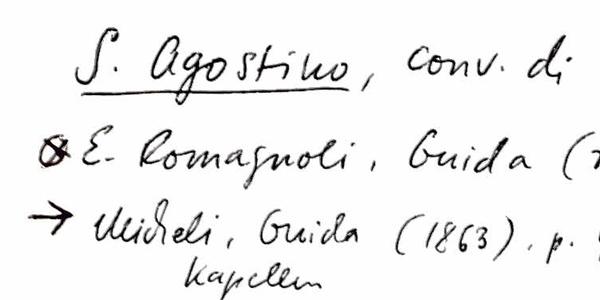 S. Agostino, conv. di
⊗ E. Romagnoli, Guida (
→ Micheli, Guida (1863), p.
Kapellen